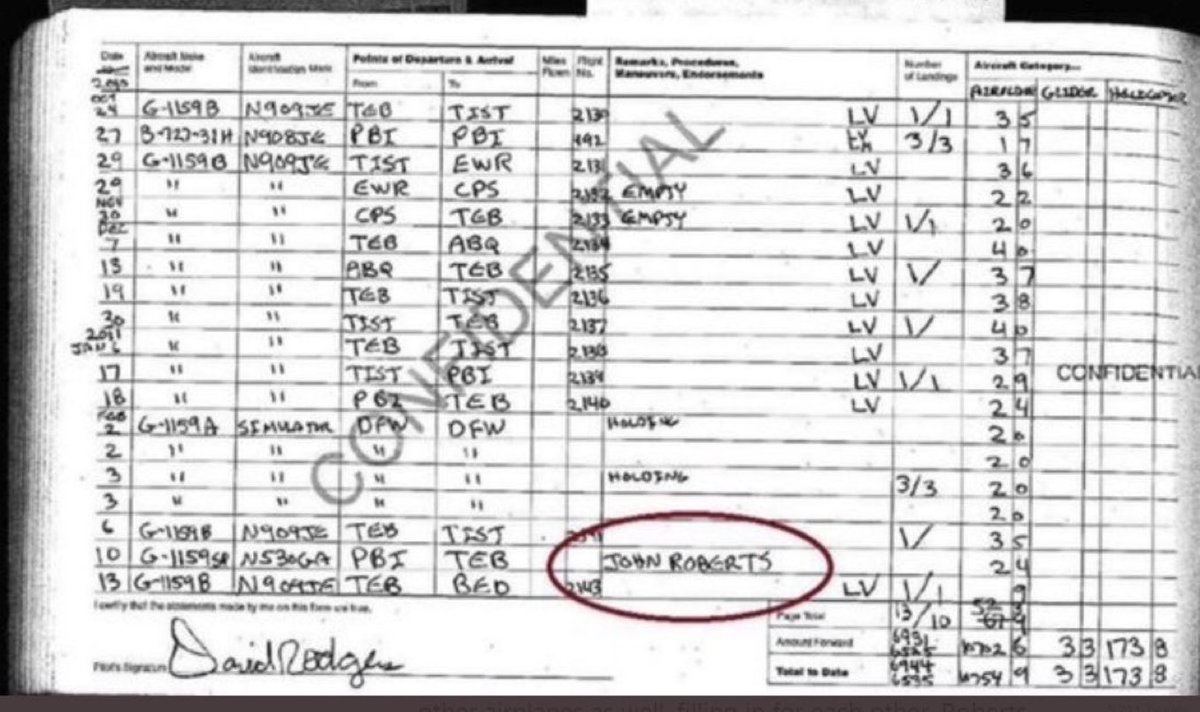 Date Aircraft Make and Model Aircraft Identification Mark Points of Departure & Arrival Miles Flown Flight No. Remarks, Procedures, Maneuvers, Endorsements Number of Landings Aircraft Category
From To AIRPLANE GLIDER
OCT 24 G-1159B N909JE TEB TIST 2130 LV 1/1 3 5
27 B-727-31H N908JE PBI PBI 492 LV 3/3 1 7
29 G-1159B N909JE TIST EWR 2131 LV 3 6
29 " " EWR CPS 2132 EMPTY LV 2 2
NOV 30 " " CPS TEB 2133 EMPTY LV 1/1 2 0
DEC 7 " " TEB ABQ 2134 LV 4 0
13 " " ABQ TEB 2135 LV 1/ 3 7
19 " " TEB TIST 2136 LV 3 8
30 " " TIST TEB 2137 LV 1/ 4 0
2011 JAN 6 " " TEB TIST 2138 LV 3 7
17 " " TIST PBI 2139 LV 1/1 2 9
CONFIDENTIAL
18 " " PBI TEB 2140 LV 2 4
FEB 2 G-1159A SIMULATOR DFW DFW HOLDING 2 0
2 " " " " 2 0
3 " " " " HOLDING 3/3 2 0
3 " " " " 2 0
6 G-1159B N909JE TEB TIST 1/ 3 5
10 N530GA PBI TEB JOHN ROBERTS 2 4
13 G-1159B N909JE TEB BED 2143 LV 1/1 9
I certify that the statements made by me on this form are true.
Page Total 13/10
Amount Forward 6931 6 3 3 173 8
Pilot's Signature David Rodgers
Total to Date 6944 9 3 3 173 8
CONFIDENTIAL